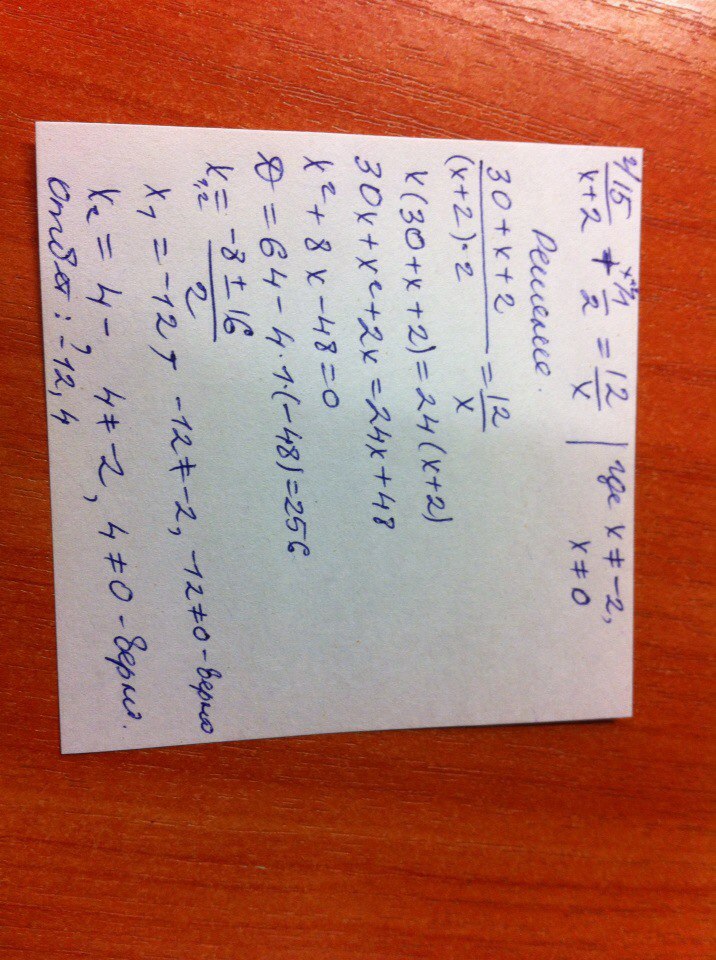 ²⁾15/(x+2) + ˣ⁺²⁾1/2 = 12/x | где x ≠ -2,
x ≠ 0
Решение.
(30+x+2)/((x+2)·2) = 12/x
x(30+x+2)=24(x+2)
30x+x²+2x=24x+48
x²+8x-48=0
D=64-4·1·(-48)=256
x₁,₂=(-8±16)/2
x₁=-12, -12≠-2, -12≠0-верно
x₂=4- 4≠-2, 4≠0-верно.
Ответ: -12, 4